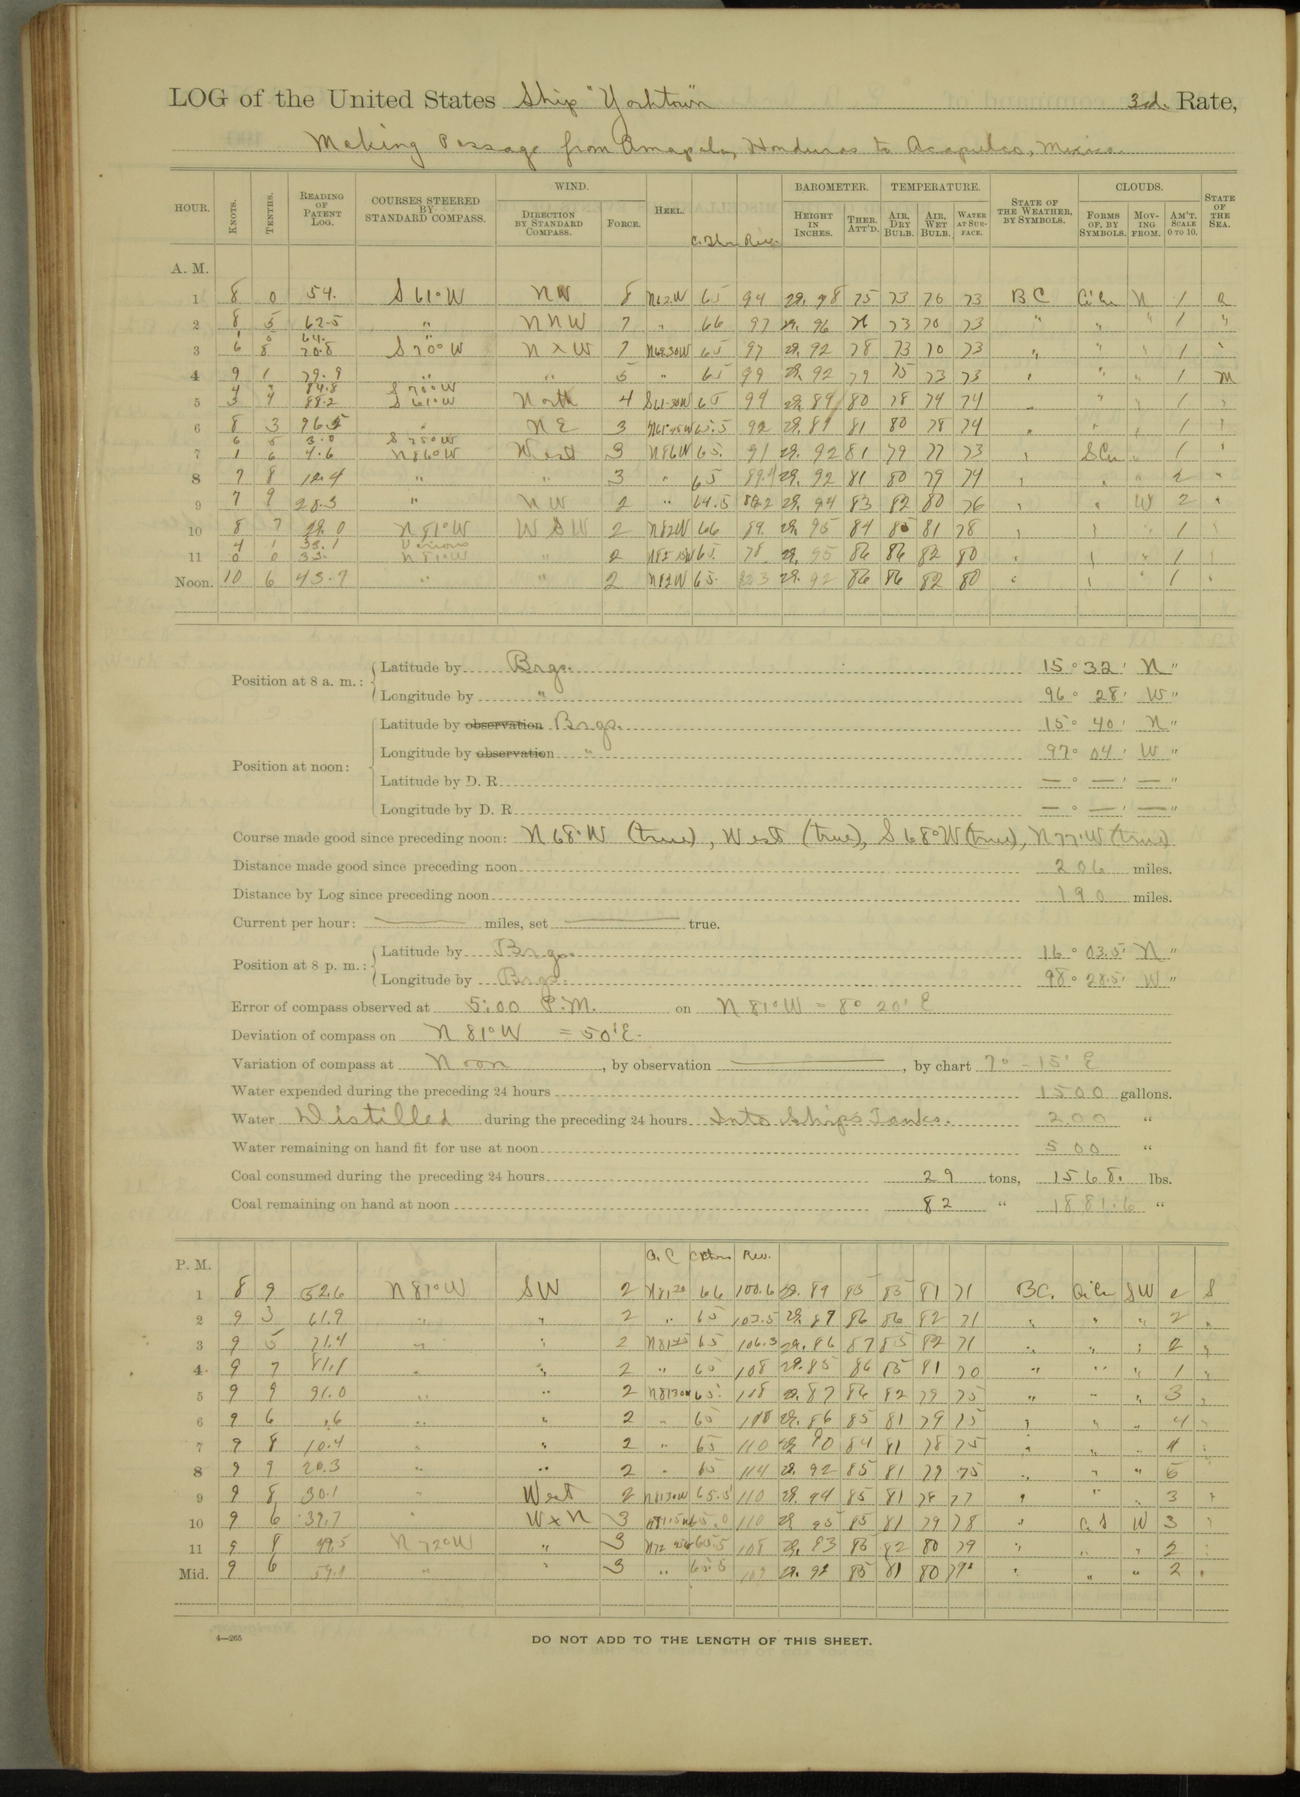 LOG of the United States Ship "Yorktown" 3d. Rate,
Making Passage from Amapala, Honduras to Acapulco, Mexico.
HOUR. KNOTS. TENTHS. READING OF PATENT LOG. COURSES STEERED BY STANDARD COMPASS. WIND. DIRECTION BY STANDARD COMPASS. FORCE. HEEL. Rev. BAROMETER. HEIGHT IN INCHES. THER. ATT'D. TEMPERATURE. AIR, DRY BULB. AIR, WET BULB. WATER AT SURFACE. STATE OF THE WEATHER, BY SYMBOLS. CLOUDS. FORMS OF, BY SYMBOLS. MOVING FROM. AM'T. SCALE 0 TO 10. STATE OF THE SEA.
A. M.
1 8 0 54. S 61° W NW 8 N62W 65 94 29.98 75 73 70 73 BC CiCu N 1
2 8 5 62.5 " NNW 7 " 66 97 29.96 73 70 73 " " " 1 "
3 6 8 70.8 S 70° W N x W 7 65 97 29.92 78 73 70 73 " " " 1 "
4 9 1 79.9 " " 5 " 65 99 29.92 79 75 73 73 " " " 1 M
5 88.2 S 61° W North 4 65 94 29.89 80 78 74 74 " " 1
6 8 3 96.5 " NE 3 65.5 92 29.89 81 80 78 74 " " 1
7 1 6 4.6 N 86° W West 3 N86W 65. 91 29.92 81 79 77 73 " SCu " 1
8 7 8 12.4 " " 3 " 65 29.92 81 80 79 74 " " 2 "
9 7 9 20.3 " NW 2 " 64.5 29.94 83 82 80 76 " " W 2 "
10 8 7 29.0 N 81° W WSW 2 N82W 66 89. 29.95 84 85 81 78 " " 1
11 0 0 33. N 81° W " 2 65. 78. 29.95 86 86 82 80 " " 1
Noon. 10 6 43.7 " " 2 N82W 65. 29.92 86 86 82 80 " " 1 "
Position at 8 a. m.: Latitude by Brgs. 15° 32' N "
Longitude by " 96° 28' W "
Position at noon: Latitude by observation Brgs. 15° 40' N "
Longitude by observation " 97° 04' W "
Latitude by D. R. — ° — ' — "
Longitude by D. R. — ° — ' — "
Course made good since preceding noon: N 68° W (true), West (true), S 68° W (true), N 77° W (true)
Distance made good since preceding noon 206 miles.
Distance by Log since preceding noon 190 miles.
Current per hour: — miles, set — true.
Position at 8 p. m.: Latitude by Brgs. 16° 03.5' N "
Longitude by Brgs. 98° 28.5' W "
Error of compass observed at 5:00 P.M. on N 81° W = 8° 20' E
Deviation of compass on N 81° W = 50' E.
Variation of compass at Noon, by observation —, by chart 7° - 15' E
Water expended during the preceding 24 hours 1500 gallons.
Water Distilled during the preceding 24 hours Into Ship's Tanks. 200 "
Water remaining on hand fit for use at noon 500 "
Coal consumed during the preceding 24 hours 29 tons, 1568. lbs.
Coal remaining on hand at noon 82 " 1881.6 "
P. M. Rev.
1 8 9 52.6 N 81° W SW 2 66 100.6 29.89 85 85 81 71 BC. CiCu SW 2 S
2 9 3 61.9 " " 2 " 65 103.5 29.87 86 86 82 71 " " " 2 "
3 9 5 71.4 " " 2 65 106.3 29.86 87 85 82 71 " " " 2 "
4 9 7 81.1 " " 2 " 65 108 29.85 86 85 81 70 " " " 1 "
5 9 9 91.0 " " 2 65. 108 29.87 86 82 79 75 " " " 3 "
6 9 6 .6 " " 2 " 65 108 29.86 85 81 79 75 " " " 4 "
7 9 8 10.4 " " 2 " 65 110 29.90 84 81 78 75 " " " 4 "
8 9 9 20.3 " " 2 " 65 114 29.92 85 81 79 75 " " " 5
9 9 8 30.1 " West 2 65.5 110 29.94 85 81 78 77 " " " 3 "
10 9 6 39.7 " W x N 3 65.0 110 29.95 85 81 79 78 " C.S W 3 "
11 9 8 49.5 N 72° W " 3 65.5 108 29.93 85 82 80 79 " " " 2 "
Mid. 9 6 59.1 " " 3 " 65.5 109 29.92 85 81 80 79 " " " 2 "
4—265
DO NOT ADD TO THE LENGTH OF THIS SHEET.